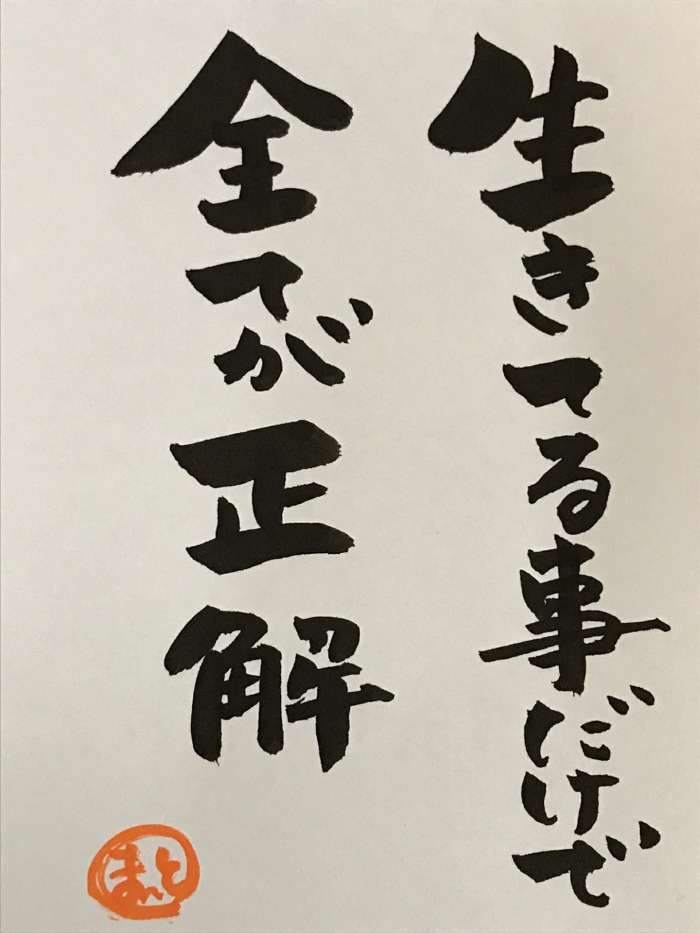 生きてる事だけで
全てが正解